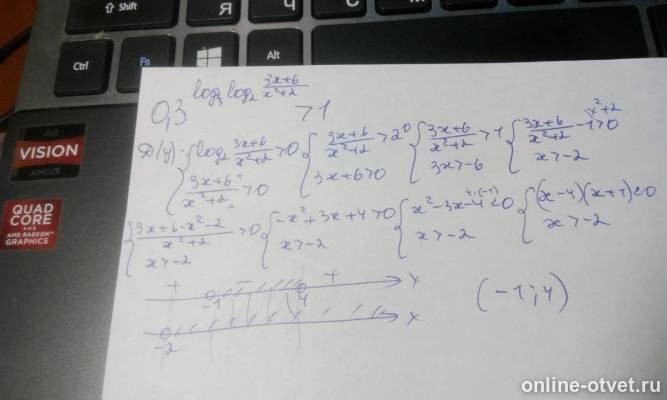 Shift
Ctrl
Fn
Alt
A8
VISION
AMD
QUAD
CORE
AND
AMD RADEON
GRAPHICS
0,3^(log₃ log₂ (3x+6)/(x²+2)) > 1
Д(у): { log₂ (3x+6)/(x²+2) > 0 { (3x+6)/(x²+2) > 2⁰ { (3x+6)/(x²+2) > 1 { (3x+6)/(x²+2) - 1 > 0
(3x+6)/(x²+2) > 0 3x+6>0 3x>-6 x>-2
{ (3x+6-x²-2)/(x²+2) > 0 { -x²+3x+4>0 { x²-3x-4<0 { (x-4)(x+1)<0
x>-2 x>-2 x>-2 x>-2
+ - + x
-1 4 (-1; 4)
-2 x
online-otvet.ru